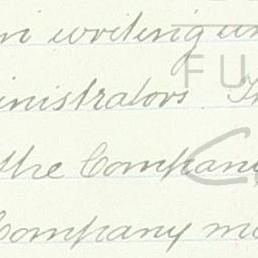 in writing un
inistrators. Th
the Company
Company ma